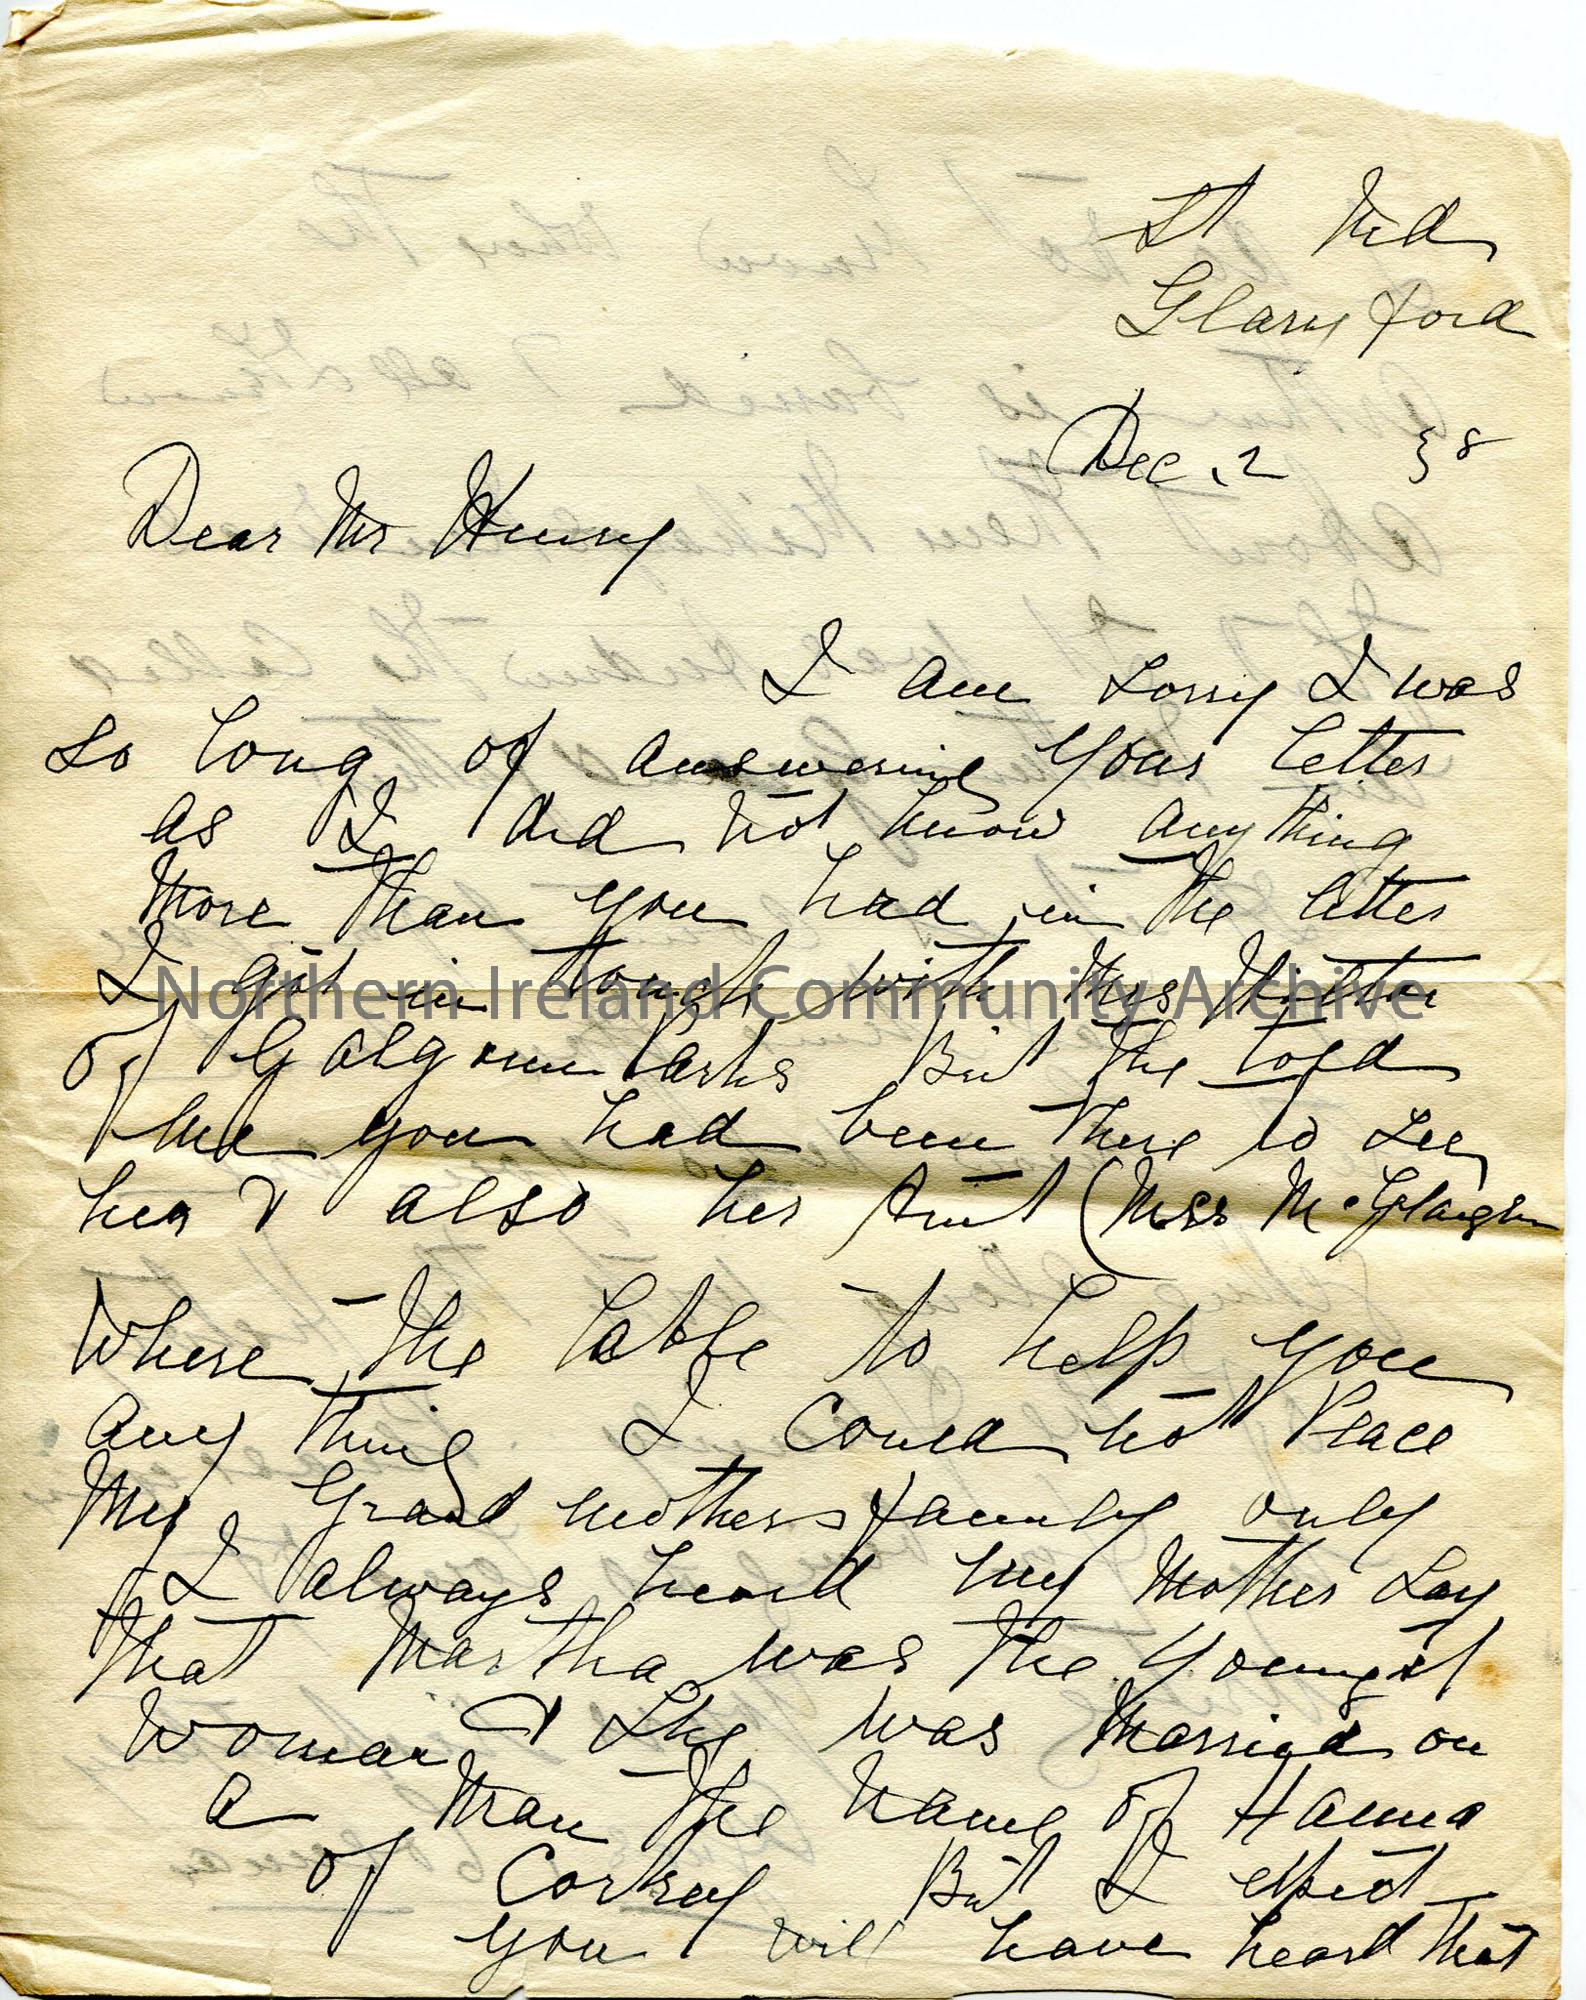 Glary ford
Dec. 2 38
Dear Mr Henry
I am sorry I was
so long of answering your letter
as I did not know any thing
More Than you had in The letter
I got in touch with Mrs
of Galgorm Parks But The told
me you had been there to see
her & also her Aunt (Miss McGlaughlin
Where The table to help you
any thing I could not Place
My Grand mothers family only
I always heard my Mother say
that Martha was the youngest
woman & she was Married on
a Man The Name of Hanna
of Corkey But I expect
you will have heard that
Northern Ireland Community Archive